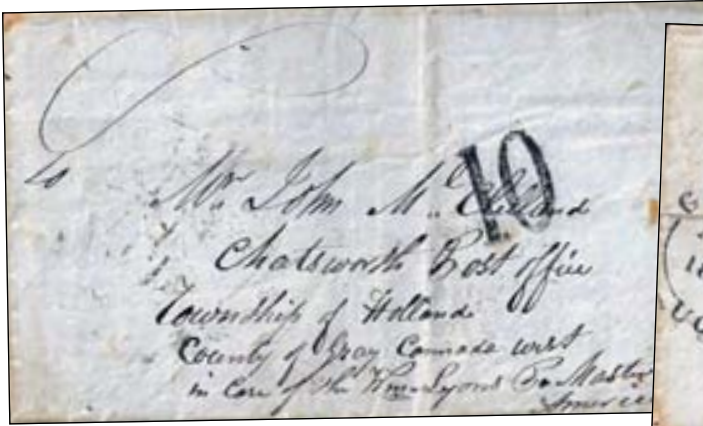 to
10
Mr. John Mc.
Chatsworth Post Office
Township of Holland
County of Gray Cannada west
in Care of the Wm Lyons Po Master
America